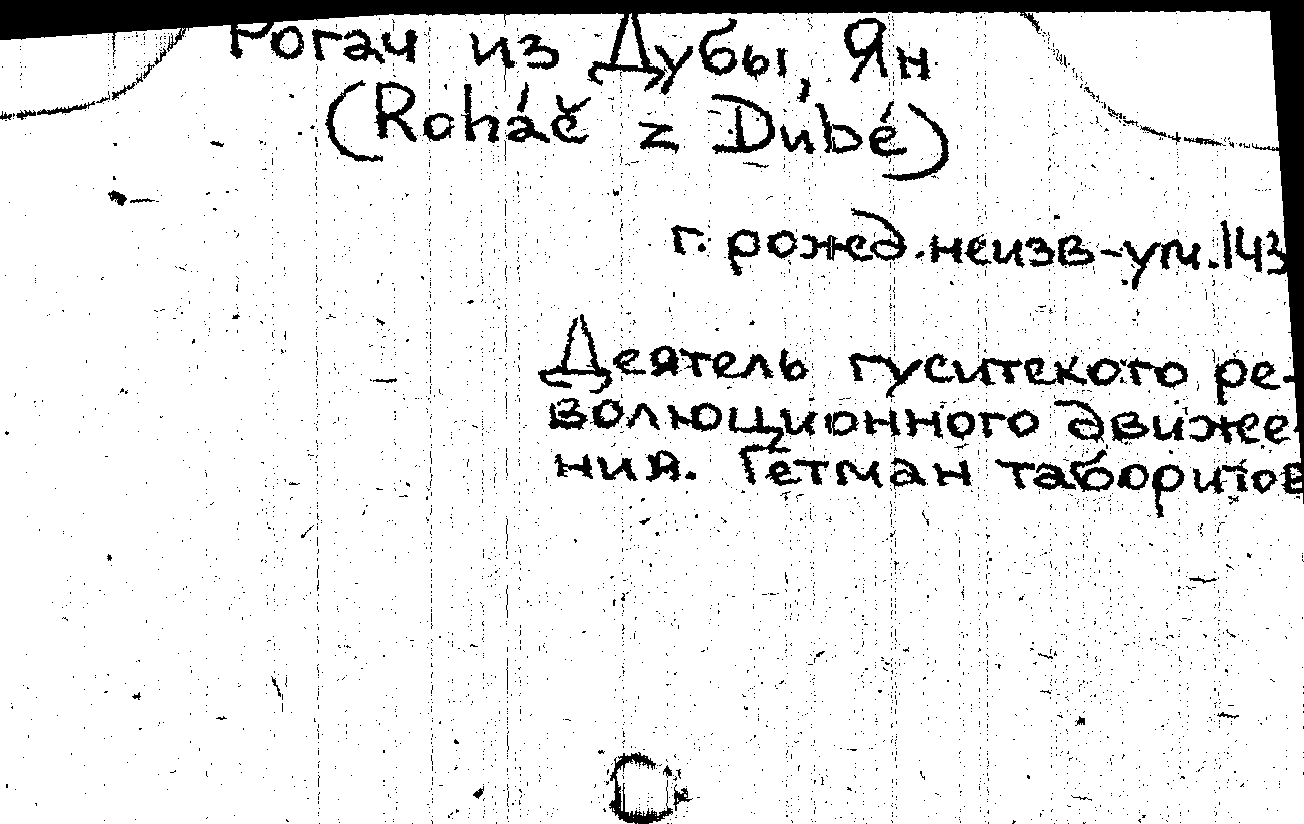 Рогач из Дубы, Ян
(Roháč z Dubé)
г. рожд. неизв-ум. 143
Деятель гуситского ре-
волюционного движе-
ния. Гетман таборитов